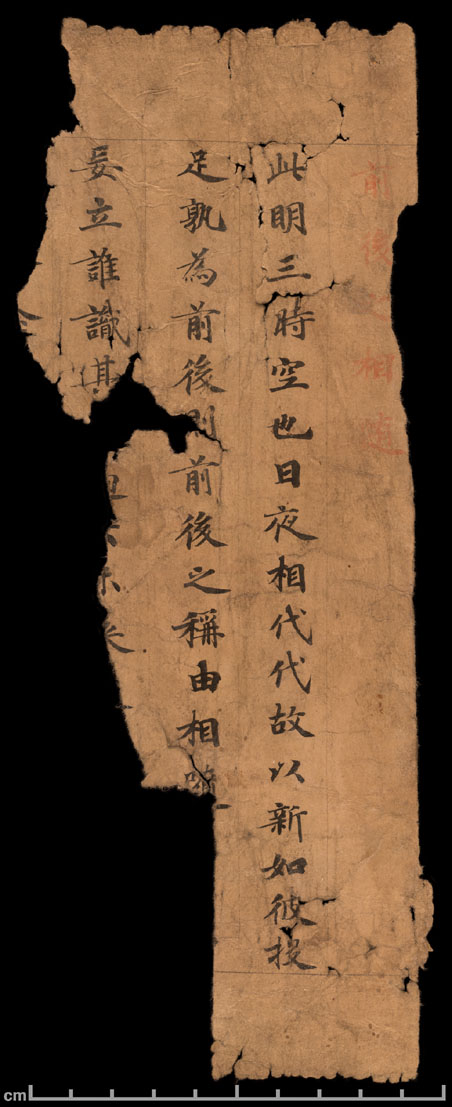 前後之相隨
此明三時空也日夜相代代故以新如彼投
足孰為前後則前後之稱由相
妄立誰識其
cm